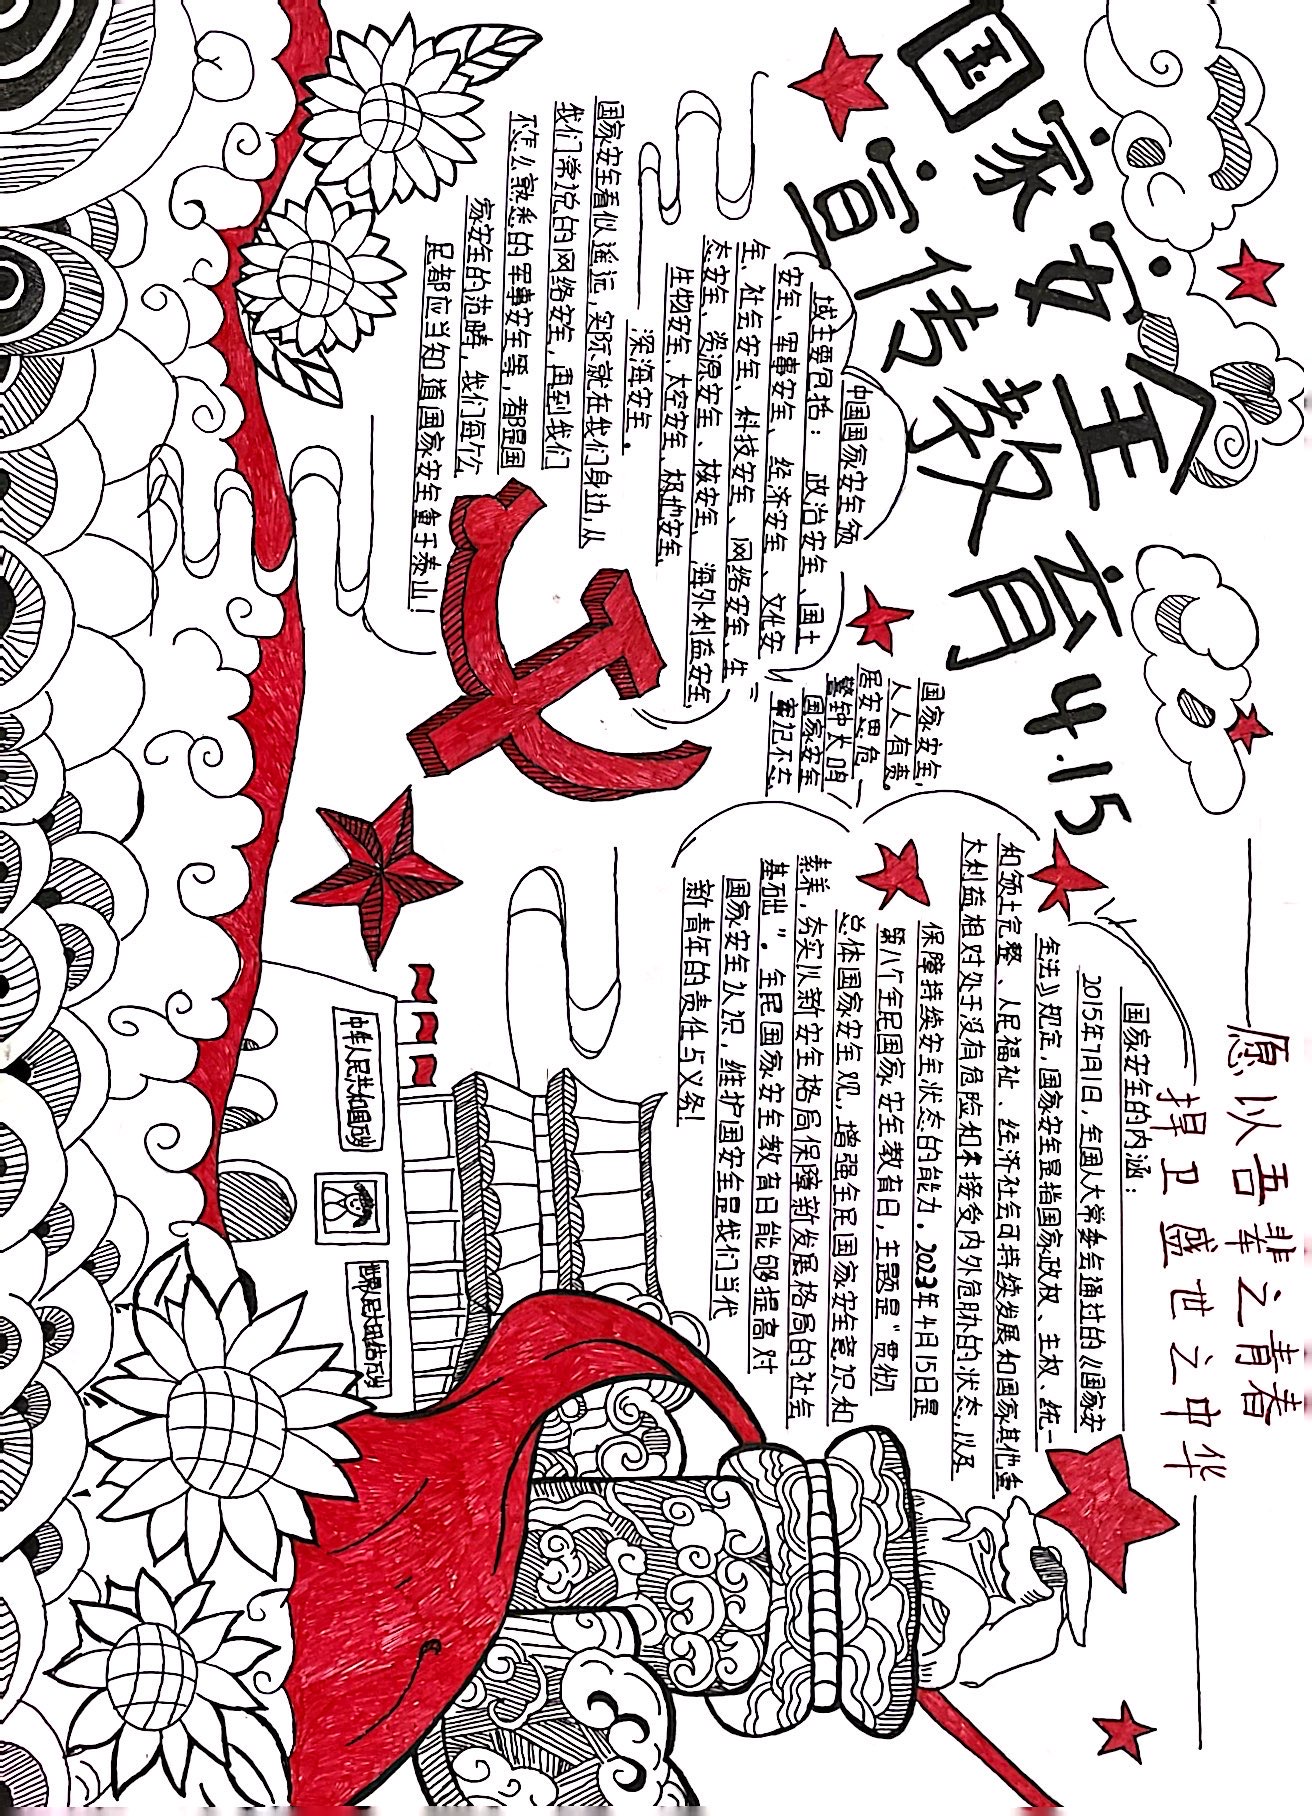 国家安全
宣传教育4.15
愿以吾辈之青春
捍卫盛世之中华
中国国家安全领
域主要包括：政治安全、国土
安全、军事安全、经济安全、文化安
全、社会安全、科技安全、网络安全、生
态安全、资源安全、核安全、海外利益安全、
生物安全、太空安全、极地安全、
深海安全。
国家安全看似遥远，实际就在我们身边，从
我们常说的网络安全，再到我们
不怎么熟悉的军事安全等，都是国
家安全的范畴，我们每个公
民都应当知道国家安全重于泰山！
国家安全，
人人有责
居安思危
警钟大鸣
国家安全
牢记不忘
国家安全的内涵：
2015年7月1日，全国人大常委会通过的《国家安
全法》规定，国家安全是指国家政权、主权、统一
和领土完整、人民福祉、经济社会可持续发展和国家其他重
大利益相对处于没有危险和不接受内外危胁的状态，以及
保障持续安全状态的能力。2023年4月15日是
第八个全民国家安全教育日，主题是“贯彻
总体国家安全观，增强全民国家安全意识和
素养，夯实以新安全格局保障新发展格局的社会
基础”。全民国家安全教育日能够提高对
国家安全认识，维护国安全是我们当代
新青年的责任与义务！
中华人民共和国万岁
世界人民大团结万岁